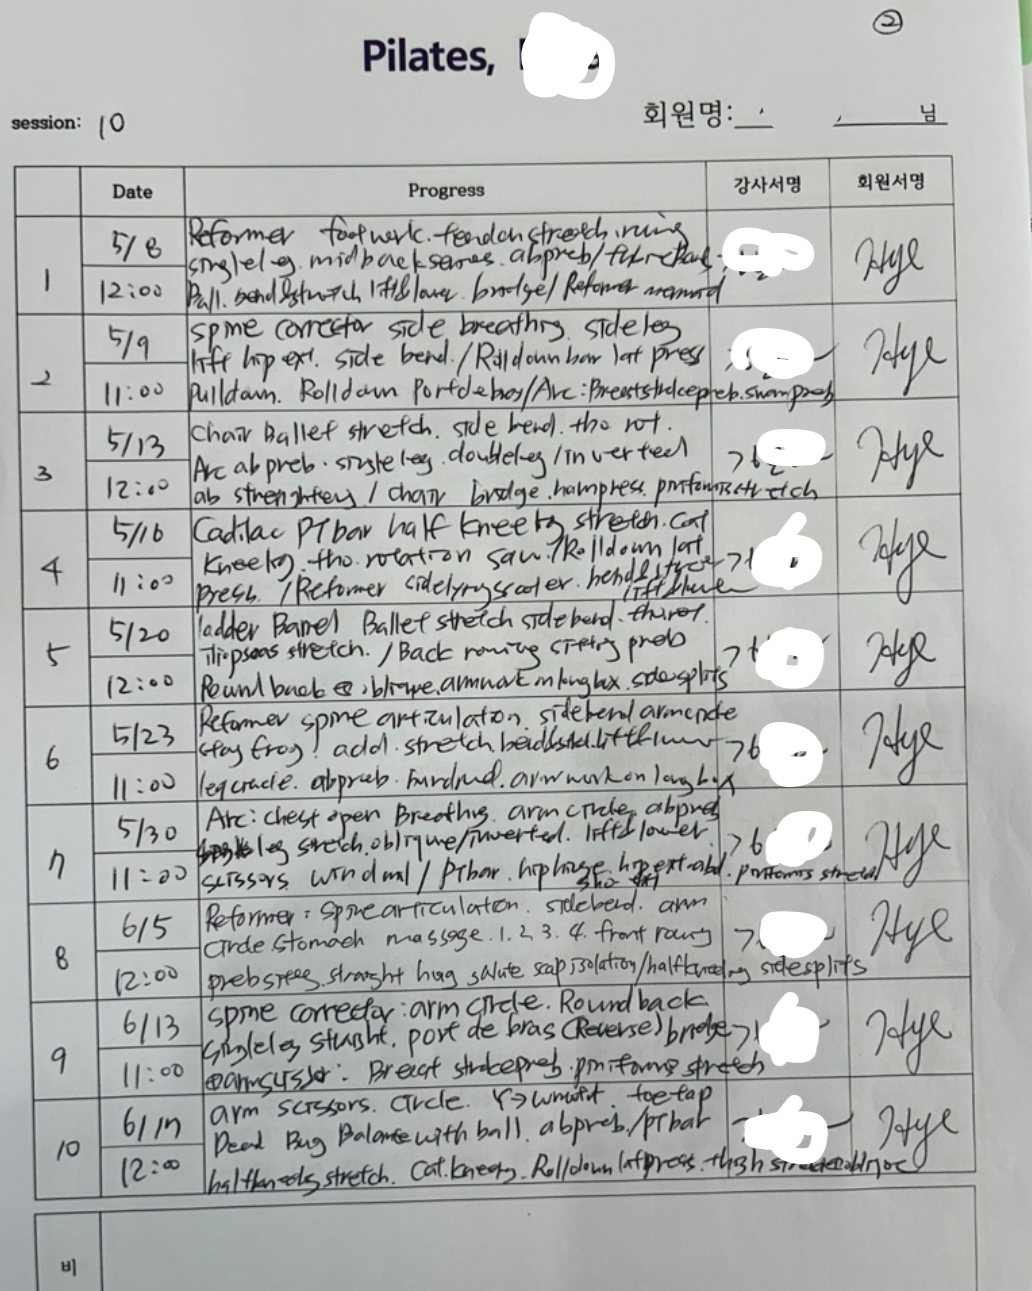 ②
Pilates,
session: 10
회원명: 님
Date Progress 강사서명 회원서명
1
5/8
12:00
Reformer footwork. tendon stretch. runing
singleleg. midback series. abpreb/
Ball. bend&stretch lift&lower. bridge/ Reformer mermaid
Hye
2
5/9
11:00
spine corrector side breathing. sideleg
lift hip ext. side bend./Rolldown bar lat press
Pulldown. Rolldown Portdebras/Arc: Breaststrokepreb. swanpreb
Hye
3
5/13
12:00
Chair Ballet stretch. side bend. tho rot.
Arc abpreb. singleleg. doubleleg/inverted
ab strenghteny / chair bridge. hampress. piriformis stretch
Hye
4
5/16
11:00
Cadilac PTbar half kneeling stretch. Cat
kneeling. tho. rotation saw./Rolldown lat
press. /Reformer sidelyingscooter. bend&stretch
lift&lower
Hye
5
5/20
12:00
ladder Barrel Ballet stretch sidebend. thorot.
Iliopsoas stretch. /Back rowing sitting preb
Round back oblique. armwork on longbox. sidesplits
Hye
6
5/23
11:00
Reformer spine articulation. sidebend armcircle
stay frog! add. stretch lift&lower
legcircle. abpreb. hundred. armwork on longbox
Hye
7
5/30
11:00
Arc: chest open Breathing. arm circle, abpreb
leg stretch. oblique/inverted. lift&lower
scissors windmil / PTbar. hiphinge hipext. abd. piriformis stretch
Hye
8
6/5
12:00
Reformer: spinearticulation. sidebend. arm
circle stomach massage. 1. 2. 3. 4. front rowing
preb straight hug salute scapisolation/halfkneeling sidesplits
Hye
9
6/13
11:00
spine corrector: arm circle. Roundback
singleleg straight. port de bras (Reverse) bridge
armscissor: Breast strokepreb. piriformis stretch
Hye
10
6/17
12:00
arm scissors. circle. Y→W toetap
Dead Bug Balance with ball. abpreb./PTbar
halfkneeling stretch. Cat. kneeling. Rolldown latpress. thigh stretch oblique
Hye
비